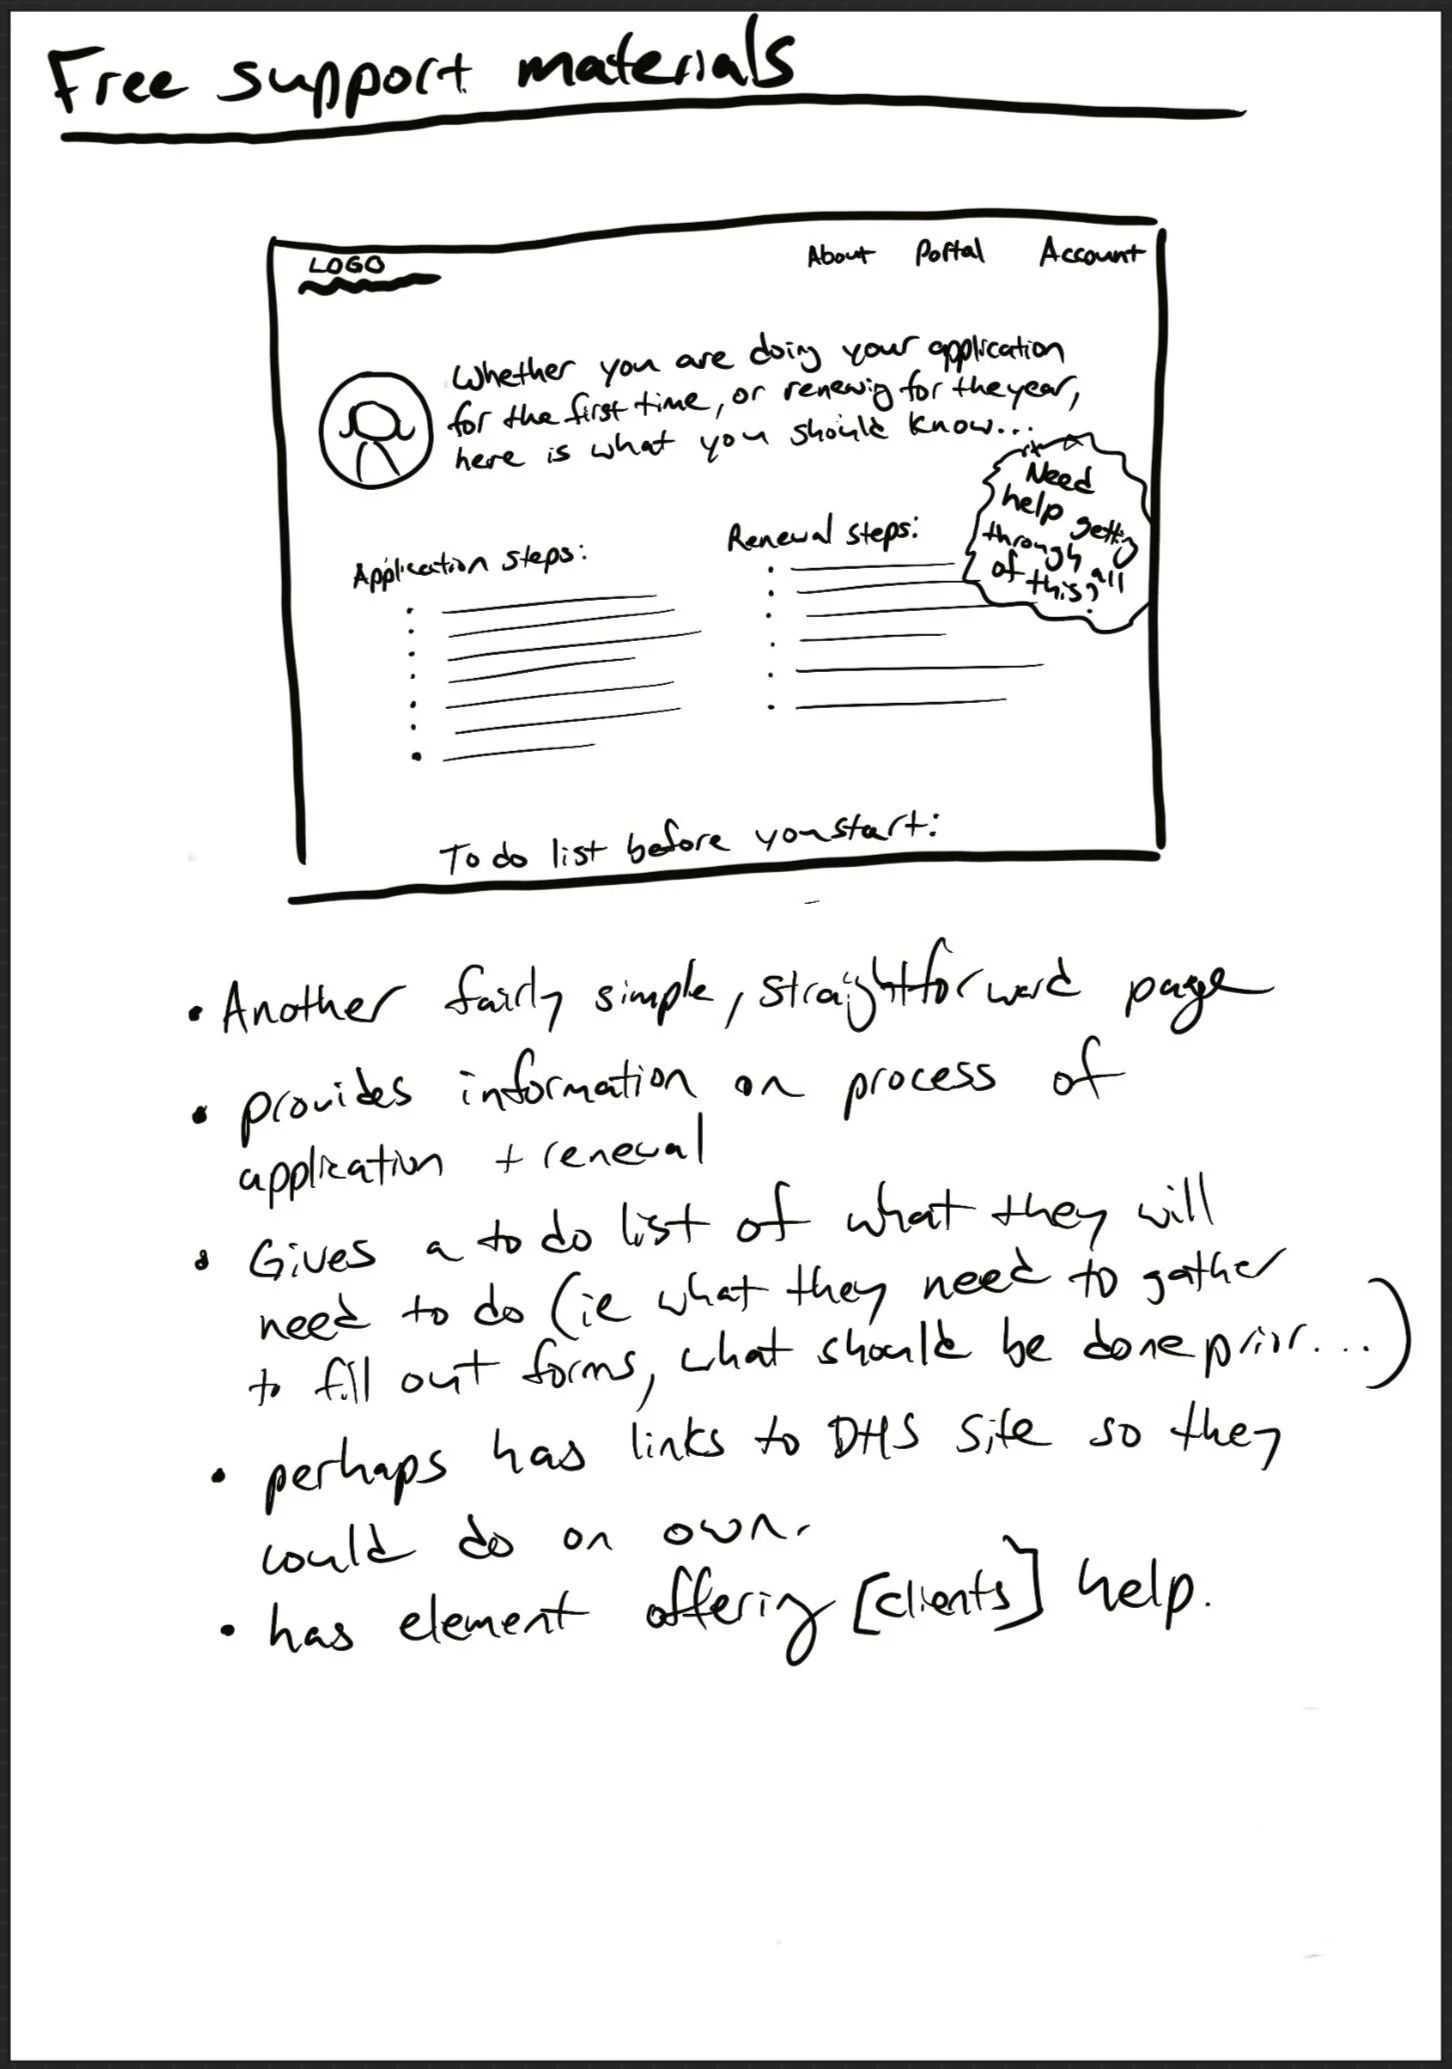 Free support materials
LOGO
About Portal Account
Whether you are doing your application
for the first time, or renewing for the year,
here is what you should know...
Need
help getting
through all
of this?
Application steps:
Renewal steps:
To do list before you start:
• Another fairly simple, straightforward page
• provides information on process of
application + renewal
• Gives a to do list of what they will
need to do (ie what they need to gather
to fill out forms, what should be done prior...)
• perhaps has links to DHS site so they
could do on own.
• has element offering [clients] help.